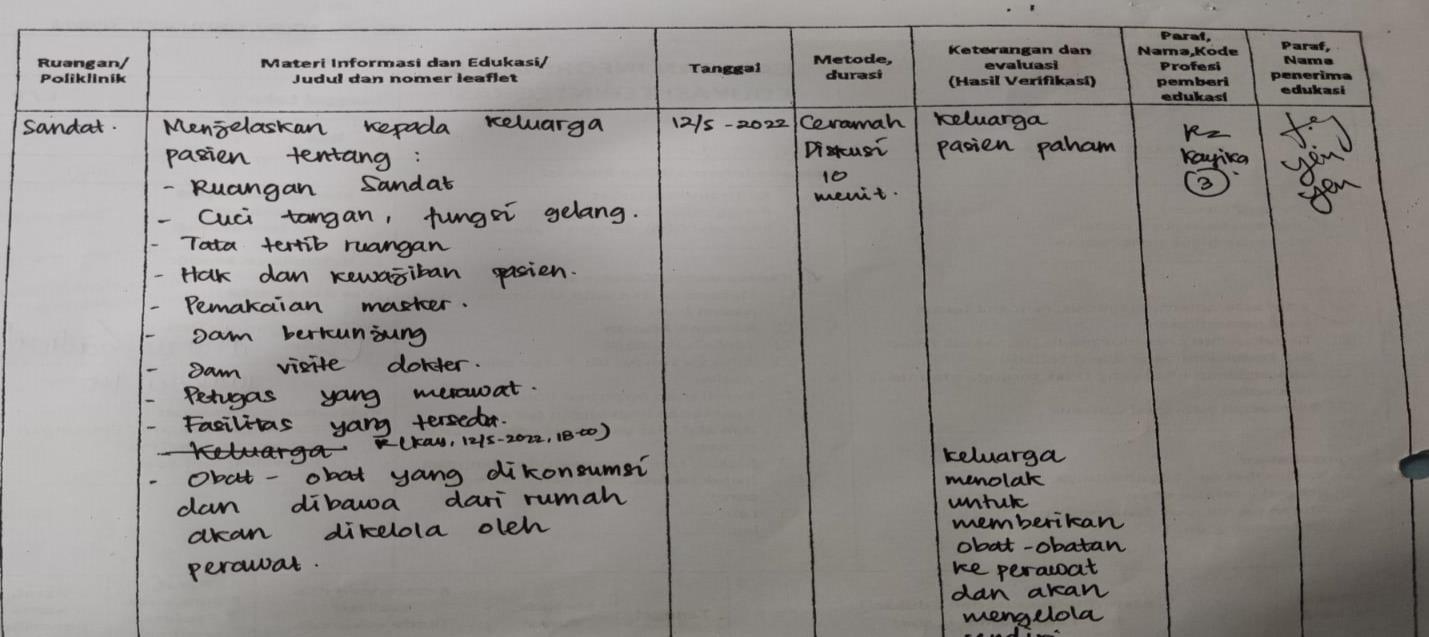 Ruangan/
Poliklinik
Materi Informasi dan Edukasi/
Judul dan nomer leaflet
Tanggal
Metode,
durasi
Keterangan dan
evaluasi
(Hasil Verifikasi)
Paraf,
Nama,Kode
Profesi
pemberi
edukasi
Paraf,
Nama
penerima
edukasi
Sandat.
Menjelaskan kepada keluarga
pasien tentang :
- Ruangan Sandat
- Cuci tangan, fungsi gelang.
- Tata tertib ruangan
- Hak dan kewajiban pasien.
- Pemakaian masker.
- Jam berkunjung
- Jam visite dokter.
- Petugas yang merawat.
- Fasilitas yang tersedia.
- Keluarga (Kay, 12/5-2022, 18.00)
- Obat - obat yang dikonsumsi
dan dibawa dari rumah
akan dikelola oleh
perawat.
12/5 -2022
Ceramah
Diskusi
10
menit.
Keluarga
pasien paham
keluarga
menolak
untuk
memberikan
obat -obatan
ke perawat
dan akan
mengelola
sendiri
Kayika
(3)
yen
yen